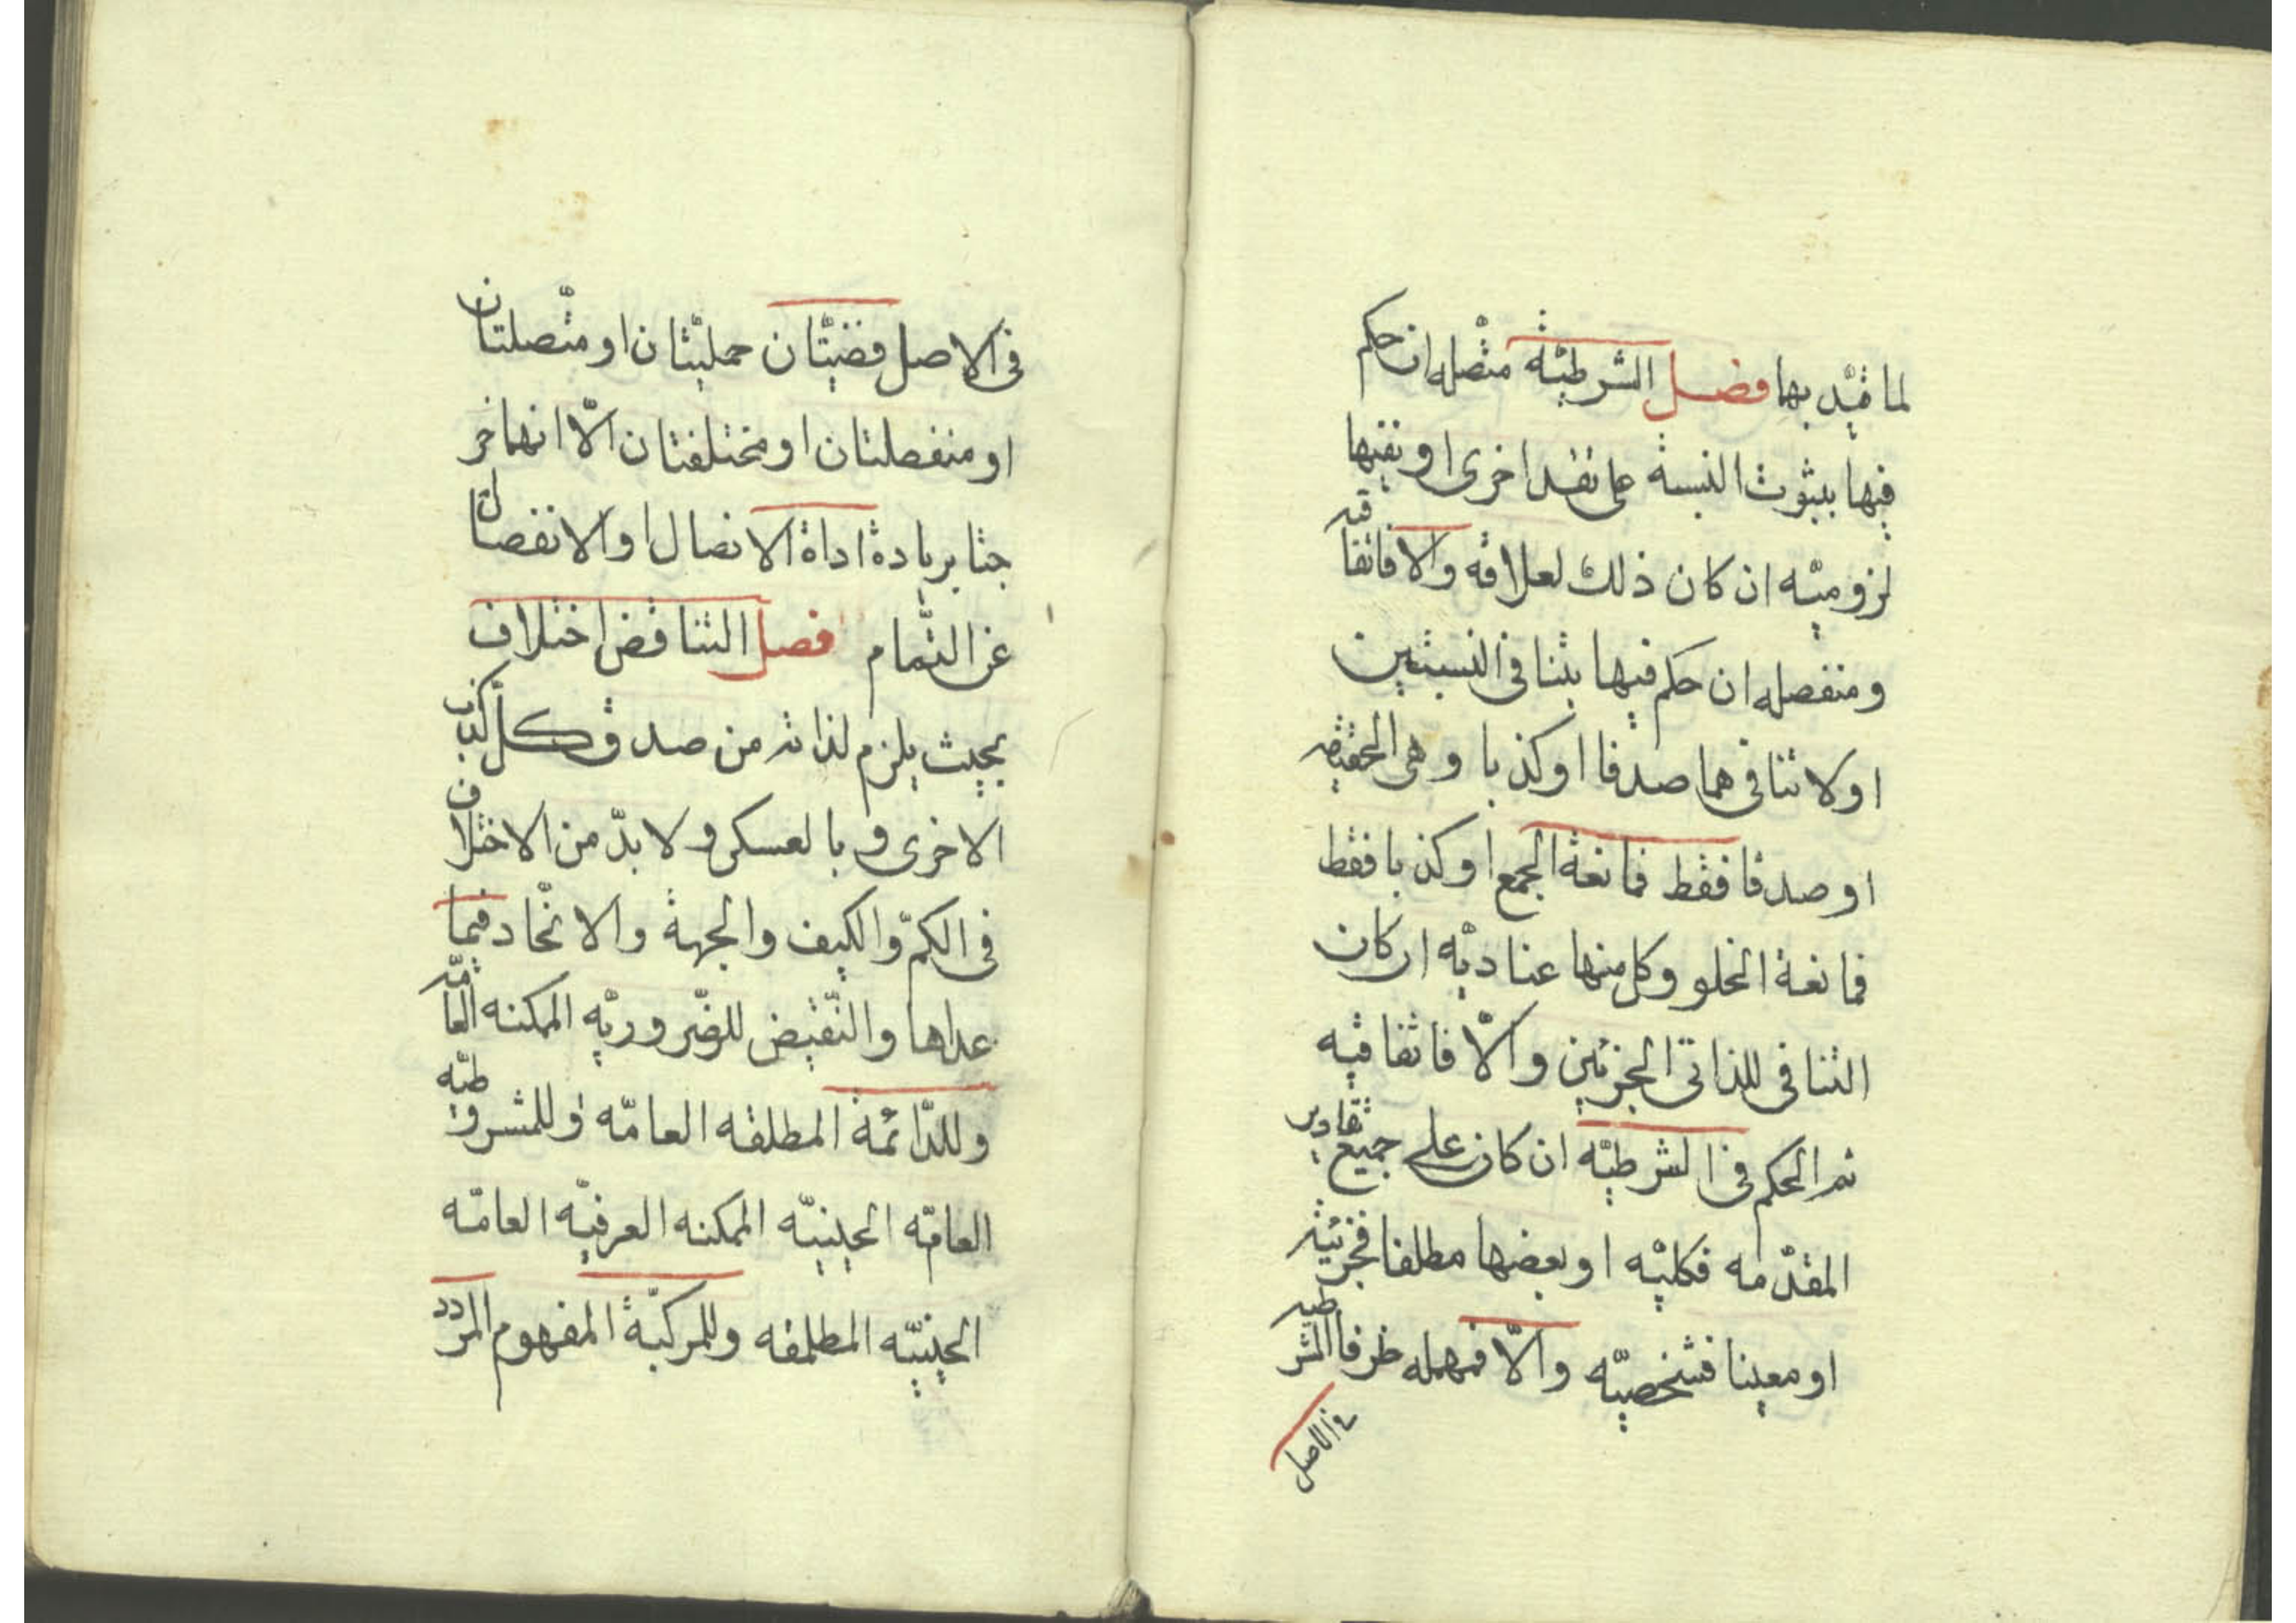 لما قيّد بها فصل الشرطيّة متّصله ان حكم
فيها بثبوت النسبة على تقد اخرى او نفيها
لزوميّه ان كان ذلك لعلاقه والا فاتفاقيه
ومنفصله ان حكم فيها بتنافى النسبتين
او لا تنافيهما صدقا او كذبا وهى الحقيقيه
او صدقا فقط فمانعة الجمع او كذبا فقط
فمانعة الخلو وكل منها عناديّه ان كان
التنافى للذاتى الجزئين والّا فاتفاقيه
ثم الحكم فى الشرطيّه ان كان على جميع تقادير
المقدّمه فكليّه او بعضها مطلقا فجزئيّه
او معينا فشخصيّه والّا فمهمله طرفا الشرطيه
فى الاصل
فى الاصل قضيّتان حمليّتان او متّصلتان
او منفصلتان او مختلفتان الّا انهما خر
جتا بزيادة اداة الاتصال او الانفصال
عن التّمام فصل التناقض اختلاف
بحيث يلزم لذاته من صدق كلّ كذب
الاخرى و بالعسكر ولا بدّ من الاختلاف
فى الكمّ والكيف والجهة والاتّحاد فيما
عداها والنّقيض للضّروريّه الممكنه العامّه
وللدّائمة المطلقه العامّه وللمشروطيّه
العامّه الحينيّه الممكنه العرفيّه العامّه
الحينيّه المطلقه وللمركبّة المفهوم المردد